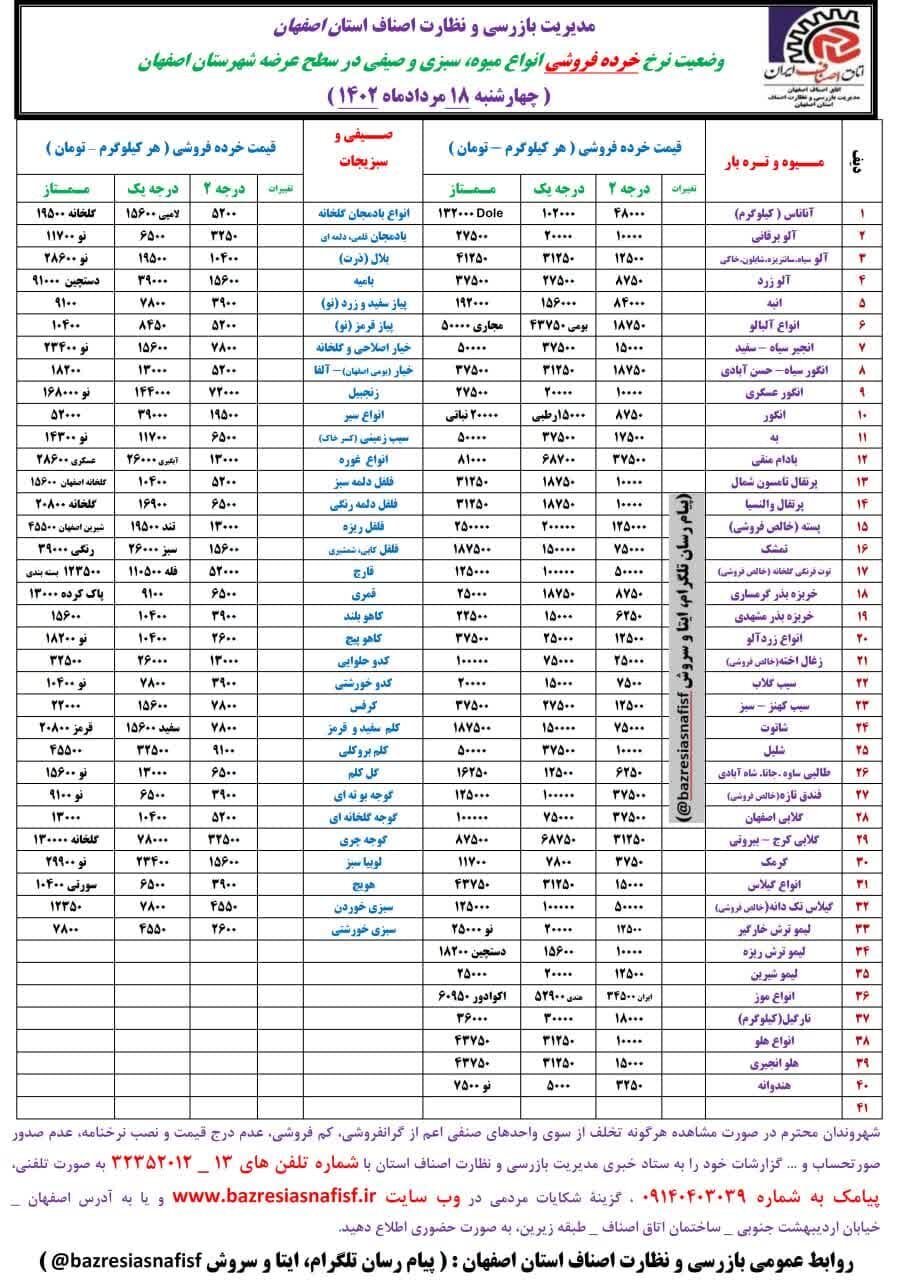 مدیریت بازرسی و نظارت اصناف استان اصفهان
وضعیت نرخ خرده فروشی انواع میوه، سبزی و صیفی در سطح عرضه شهرستان اصفهان
( چهارشنبه ۱۸ مردادماه ۱۴۰۲ )
اتاق اصناف ایران
اتاق اصناف اصفهان
مدیریت بازرسی و نظارت اصناف
استان اصفهان
ردیف میوه و تره بار قیمت خرده فروشی ( هر کیلوگرم – تومان ) صیفی و سبزیجات قیمت خرده فروشی ( هر کیلوگرم – تومان )
تغییرات درجه ۲ درجه یک ممتاز تغییرات درجه ۲ درجه یک ممتاز
۱ آناناس ( کیلوگرم) ۴۸۰۰۰ ۱۰۲۰۰۰ Dole ۱۳۲۰۰۰ انواع بادمجان گلخانه ۵۲۰۰ لامپی ۱۵۶۰۰ گلخانه ۱۹۵۰۰
۲ آلو برقانی ۱۰۰۰۰ ۲۰۰۰۰ ۲۷۵۰۰ بادمجان قلمی، دلمه ای ۳۲۵۰ ۶۵۰۰ نو ۱۱۷۰۰
۳ آلو سیاه،سانتریزه،شابلون،خاکی ۱۲۵۰۰ ۳۱۲۵۰ ۴۱۲۵۰ بلال (ذرت) ۱۰۴۰۰ ۱۹۵۰۰ نو ۲۸۶۰۰
۴ آلو زرد ۸۷۵۰ ۲۷۵۰۰ ۳۷۵۰۰ بامیه ۱۵۶۰۰ ۳۹۰۰۰ دستچین ۹۱۰۰۰
۵ انبه ۸۴۰۰۰ ۱۵۶۰۰۰ ۱۹۲۰۰۰ پیاز سفید و زرد (نو) ۳۹۰۰ ۷۸۰۰ ۹۱۰۰
۶ انواع آلبالو ۱۸۷۵۰ بومی ۴۳۷۵۰ مجاری ۵۰۰۰۰ پیاز قرمز (نو) ۵۲۰۰ ۸۴۵۰ ۱۰۴۰۰
۷ انجیر سیاه – سفید ۱۵۰۰۰ ۳۷۵۰۰ ۵۰۰۰۰ خیار اصلاحی و گلخانه ۷۸۰۰ ۱۵۶۰۰ نو ۲۳۴۰۰
۸ انگور سیاه – حسن آبادی ۱۸۷۵۰ ۳۱۲۵۰ ۳۷۵۰۰ خیار (بومی اصفهان) – آلفا ۵۲۰۰ ۱۳۰۰۰ ۱۸۲۰۰
۹ انگور عسکری ۱۰۰۰۰ ۲۰۰۰۰ ۲۷۵۰۰ زنجبیل ۷۲۰۰۰ ۱۴۴۰۰۰ نو ۱۶۸۰۰۰
۱۰ انگور ۸۷۵۰ ۱۵۰۰۰رطبی ۲۰۰۰۰ نباتی انواع سیر ۱۹۵۰۰ ۳۹۰۰۰ ۵۲۰۰۰
۱۱ به ۱۷۵۰۰ ۳۷۵۰۰ ۵۰۰۰۰ سیب زمینی (کسر خاک) ۶۵۰۰ ۱۱۷۰۰ نو ۱۴۳۰۰
۱۲ بادام منقی ۳۷۵۰۰ ۶۸۷۰۰ ۸۱۰۰۰ انواع غوره ۱۳۰۰۰ آبگیری ۲۶۰۰۰ عسگری ۲۸۶۰۰
۱۳ پرتقال تامسون شمال ۱۰۰۰۰ ۱۸۷۵۰ ۳۱۲۵۰ فلفل دلمه سبز ۵۲۰۰ ۱۰۴۰۰ گلخانه اصفهان ۱۵۶۰۰
۱۴ پرتقال والنسیا ۱۰۰۰۰ ۱۸۷۵۰ ۳۱۲۵۰ فلفل دلمه رنگی ۶۵۰۰ ۱۶۹۰۰ گلخانه ۲۰۸۰۰
۱۵ پسته (خالص فروشی) ۱۲۵۰۰۰ ۲۰۰۰۰۰ ۲۵۰۰۰۰ فلفل ریزه ۱۳۰۰۰ تند ۱۹۵۰۰ شیرین اصفهان ۴۵۵۰۰
۱۶ تمشک ۷۵۰۰۰ ۱۵۰۰۰۰ ۱۸۷۵۰۰ فلفل کابی، شمشیری ۱۵۶۰۰ سبز ۲۶۰۰۰ رنگی ۳۹۰۰۰
۱۷ توت فرنگی گلخانه (خالص فروشی) ۵۰۰۰۰ ۱۰۰۰۰۰ ۱۲۵۰۰۰ قارچ ۵۲۰۰۰ فله ۱۱۰۵۰۰ ۱۲۳۵۰۰ بسته بندی
۱۸ خربزه بذر گرمساری ۸۷۵۰ ۱۸۷۵۰ ۲۵۰۰۰ قمری ۶۵۰۰ ۹۱۰۰ پاک کرده ۱۳۰۰۰
۱۹ خربزه بذر مشهدی ۶۲۵۰ ۱۵۰۰۰ ۲۲۵۰۰ کاهو بلند ۳۹۰۰ ۱۰۴۰۰ ۱۵۶۰۰
۲۰ انواع زردآلو ۱۲۵۰۰ ۲۵۰۰۰ ۳۷۵۰۰ کاهو پیچ ۲۶۰۰ ۱۰۴۰۰ نو ۱۸۲۰۰
۲۱ زغال اخته(خالص فروشی) ۲۵۰۰۰ ۷۵۰۰۰ ۱۰۰۰۰۰ کدو حلوایی ۱۳۰۰۰ ۲۶۰۰۰ ۳۲۵۰۰
۲۲ سیب گلاب ۷۵۰۰ ۱۵۰۰۰ ۲۰۰۰۰ کدو خورشتی ۳۹۰۰ ۷۸۰۰ نو ۱۰۴۰۰
۲۳ سیب کهنز – سبز ۱۲۵۰۰ ۲۷۵۰۰ ۳۷۵۰۰ کرفس ۷۸۰۰ ۱۵۶۰۰ ۲۲۰۰۰
۲۴ شاتوت ۷۵۰۰۰ ۱۵۰۰۰۰ ۱۸۷۵۰۰ کلم سفید و قرمز ۷۸۰۰ سفید ۱۵۶۰۰ قرمز ۲۰۸۰۰
۲۵ شلیل ۱۰۰۰۰ ۳۷۵۰۰ ۵۰۰۰۰ کلم بروکلی ۹۱۰۰ ۳۲۵۰۰ ۴۵۵۰۰
۲۶ طالبی ساوه ،جانا، شاه آبادی ۶۲۵۰ ۱۲۵۰۰ ۱۶۲۵۰ گل کلم ۶۵۰۰ ۱۳۰۰۰ نو ۱۵۶۰۰
۲۷ فندق تازه(خالص فروشی) ۳۷۵۰۰ ۱۰۰۰۰۰ ۱۲۵۰۰۰ گوجه بوته ای ۳۹۰۰ ۶۵۰۰ نو ۹۱۰۰
۲۸ گلابی اصفهان ۳۷۵۰۰ ۷۵۰۰۰ ۱۰۰۰۰۰ گوجه گلخانه ای ۵۲۰۰ ۱۰۴۰۰ ۱۳۰۰۰
۲۹ گلابی کرج – بیروتی ۳۱۲۵۰ ۶۸۷۵۰ ۸۷۵۰۰ گوجه چری ۳۲۵۰۰ ۷۸۰۰۰ گلخانه ۱۳۰۰۰۰
۳۰ گرمک ۳۷۵۰ ۷۸۰۰ ۱۱۷۰۰ لوبیا سبز ۱۵۶۰۰ ۲۳۴۰۰ نو ۲۹۹۰۰
۳۱ انواع گیلاس ۱۵۰۰۰ ۳۱۲۵۰ ۴۳۷۵۰ هویج ۳۹۰۰ ۶۵۰۰ سورتی ۱۰۴۰۰
۳۲ گیلاس تک دانه(خالص فروشی) ۵۰۰۰۰ ۱۰۰۰۰۰ ۱۲۵۰۰۰ سبزی خوردن ۴۵۵۰ ۷۸۰۰ ۱۲۳۵۰
۳۳ لیمو ترش خارگیر ۱۲۵۰۰ ۲۰۰۰۰ نو ۲۵۰۰۰ سبزی خورشتی ۲۶۰۰ ۴۵۵۰ ۷۸۰۰
۳۴ لیمو ترش ریزه ۱۰۰۰۰ ۱۵۶۰۰ دستچین ۱۸۲۰۰
۳۵ لیمو شیرین ۱۲۵۰۰ ۲۰۰۰۰ ۲۵۰۰۰
۳۶ انواع موز ایران ۳۴۵۰۰ هندی ۵۲۹۰۰ اکوادور ۶۰۹۵۰
۳۷ نارگیل(کیلوگرم) ۱۸۰۰۰ ۳۰۰۰۰ ۳۶۰۰۰
۳۸ انواع هلو ۱۰۰۰۰ ۳۱۲۵۰ ۴۳۷۵۰
۳۹ هلو انجیری ۱۵۰۰۰ ۳۱۲۵۰ ۴۳۷۵۰
۴۰ هندوانه ۳۲۵۰ ۵۰۰۰ نو ۷۵۰۰
۴۱
(پیام رسان تلگرام، ایتا و سروش bazresiasnafisf@)
شهروندان محترم در صورت مشاهده هرگونه تخلف از سوی واحدهای صنفی اعم از گرانفروشی، کم فروشی، عدم درج قیمت و نصب نرخنامه، عدم صدور
صورتحساب و ... گزارشات خود را به ستاد خبری مدیریت بازرسی و نظارت اصناف استان با شماره تلفن های ۱۳ _ ۳۲۳۵۲۰۱۲ به صورت تلفنی،
پیامک به شماره ۰۹۱۴۰۴۰۳۰۳۹ ، گزینۀ شکایات مردمی در وب سایت www.bazresiasnafisf.ir و یا به آدرس اصفهان _
خیابان اردیبهشت جنوبی _ ساختمان اتاق اصناف _ طبقه زیرین، به صورت حضوری اطلاع دهید.
روابط عمومی بازرسی و نظارت اصناف استان اصفهان : ( پیام رسان تلگرام، ایتا و سروش bazresiasnafisf@ )